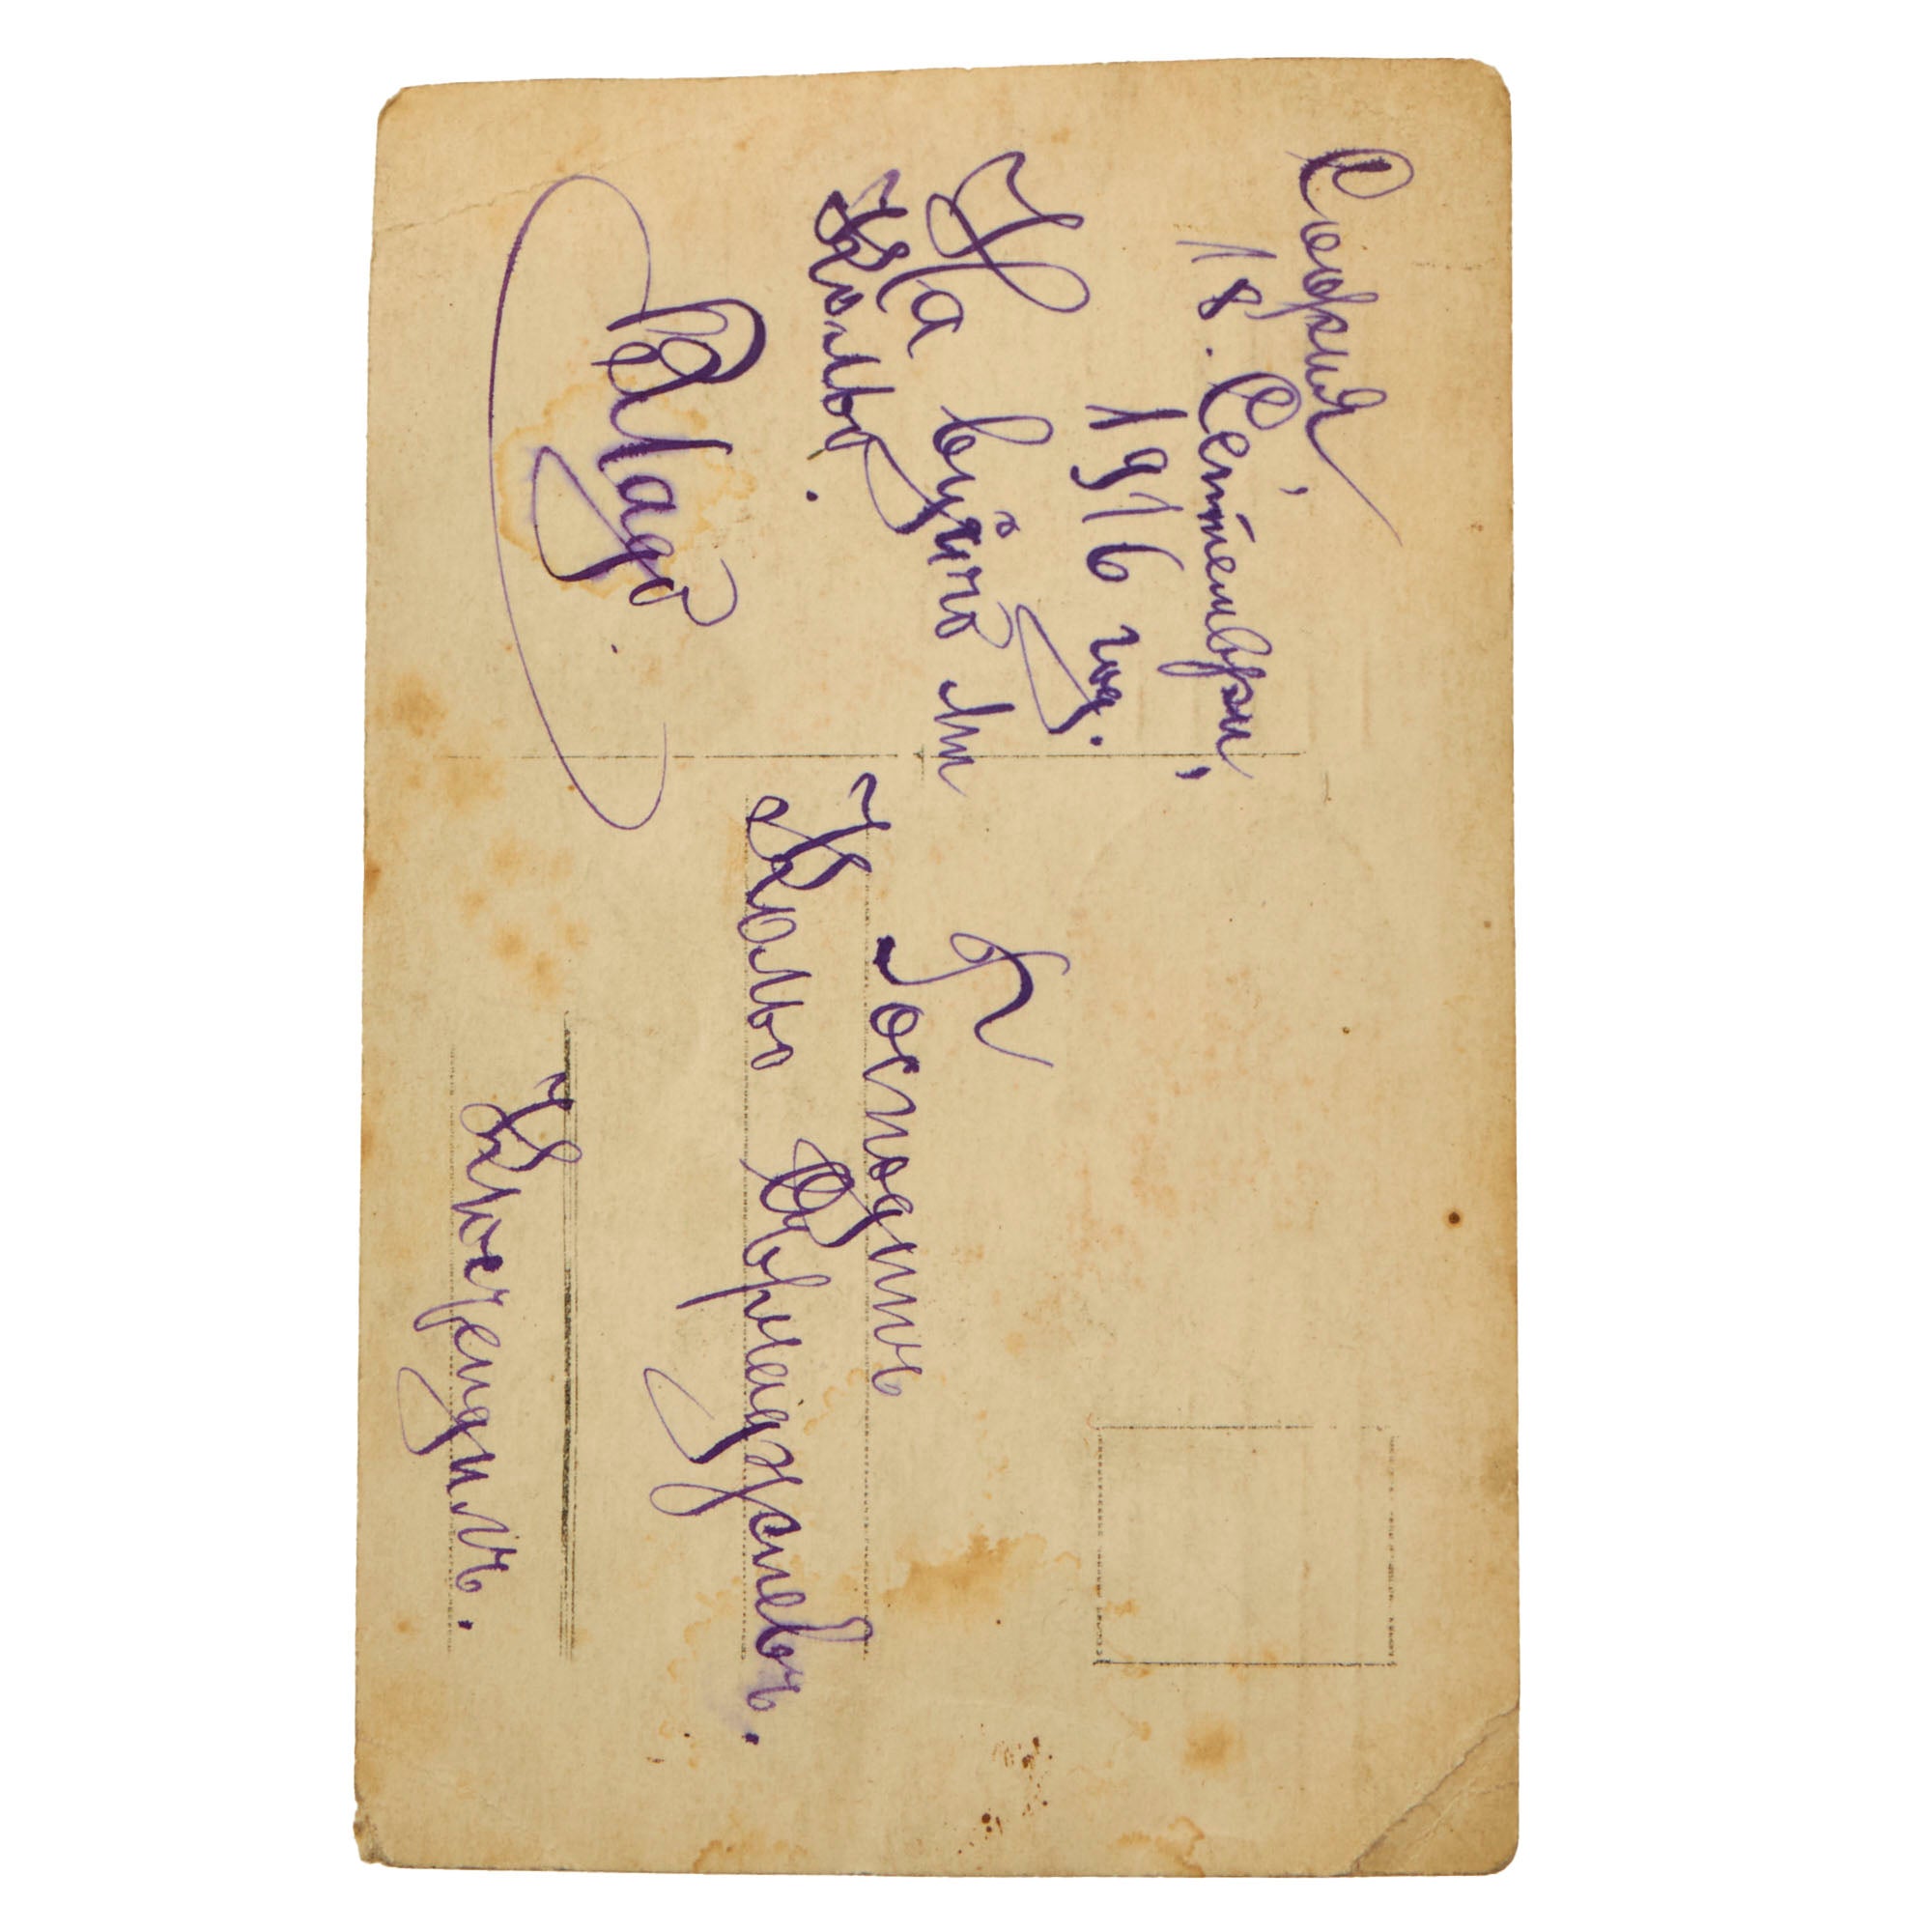 София,
18. Септемврий,
1916 год.
На вуйчо ми
Кольо.
Владо.
Г
Господинъ
Кольо
Кюстендилъ.